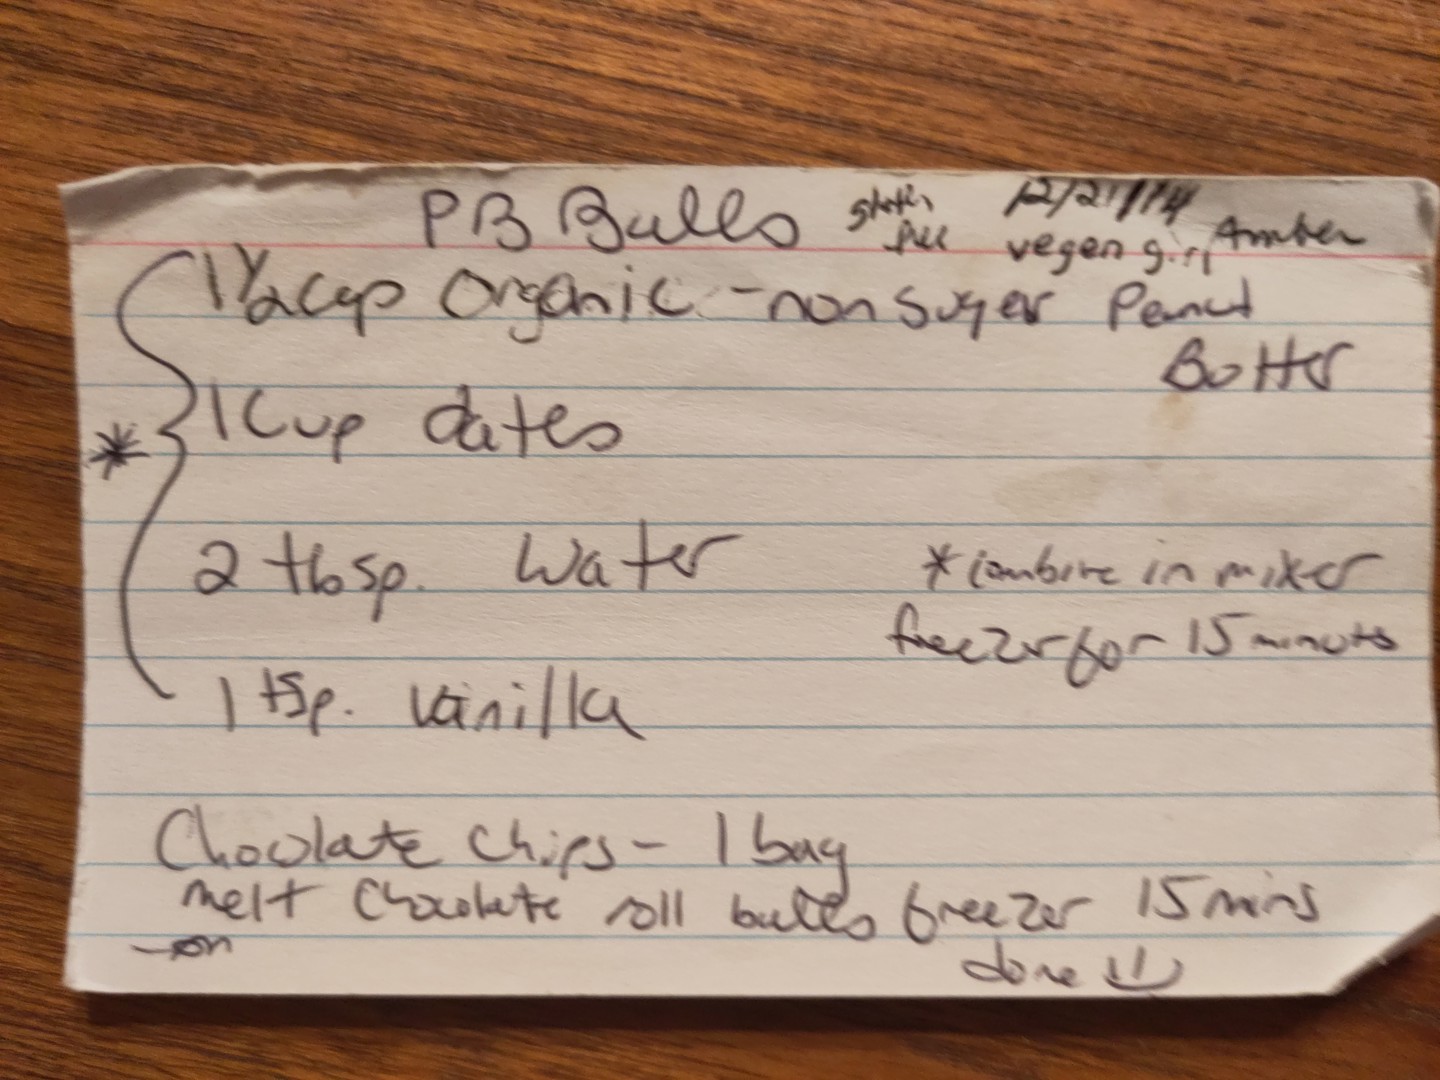 PB Balls
12/21/14
vegen girl Amber
1 1/2 cup organic - non suger Peanut
Butter
1 Cup dates
2 tbsp. Water
* combine in mixer
freezer for 15 minuts
1 tsp. vanilla
*
Chocolate chips - 1 bag
melt Chocolate roll balls freezer 15 mins
done